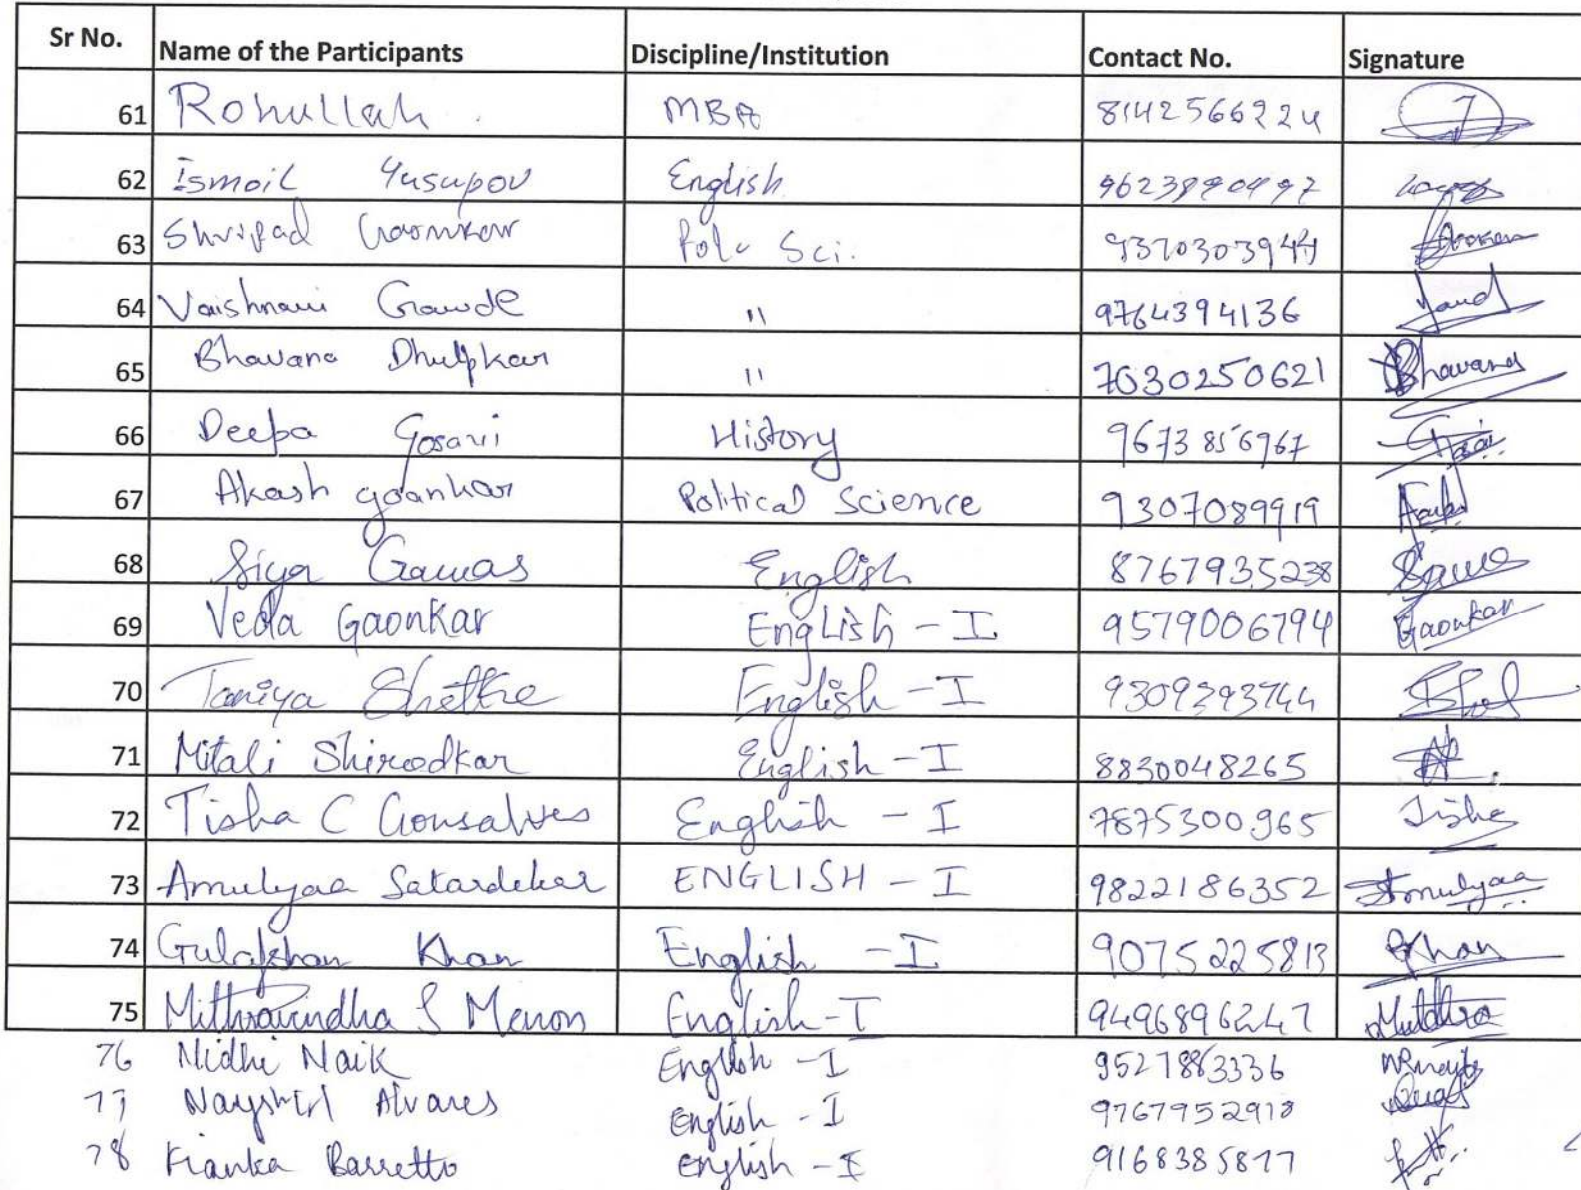 Sr No. Name of the Participants Discipline/Institution Contact No. Signature
61 Rohullah MBA 8142566224
62 Ismoil Yusupov English 9623890497
63 Shripad Gaonkar Pol. Sci. 9370303944
64 Vaishnavi Gawde " 9764394136
65 Bhavana Dhulpkar " 7030250621 Bhavana
66 Deepa Gosavi History 9673856967
67 Akash gaonkar Political Science 9307089919
68 Siya Gawas English 8767935238
69 Veda Gaonkar English - I 9579006794 Gaonkar
70 Taniya Shetke English - I 9309393744
71 Mitali Shirodkar English - I 8830048265
72 Tisha C Gonsalves English - I 7875300965 Tisha
73 Amulyaa Satardekar ENGLISH - I 9822186352 Amulyaa
74 Gulafshan Khan English - I 9075225813 Khan
75 Mithravindha S Menon English - I 9496896247
76 Nidhi Naik English - I 9527883336
77 Alvares English - I 9767952918
78 Kianka Barretto English - I 9168385877